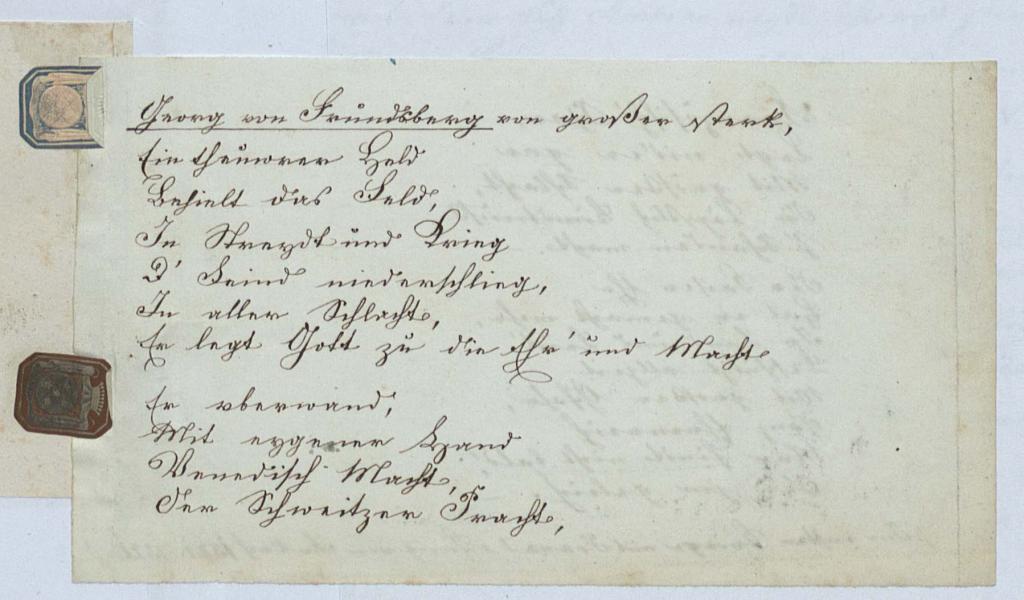 Georg von Frundsberg von großer sterk,
Ein theuwrer Held
Behielt das Feld,
In Streydt und Krieg
D' Feind niederschlieg,
In aller Schlacht,
Er legt Gott zu die Ehr' und Macht
Er vberwand,
Mit eygener Hand
Venedisch Macht,
Der Schweitzer Pracht,